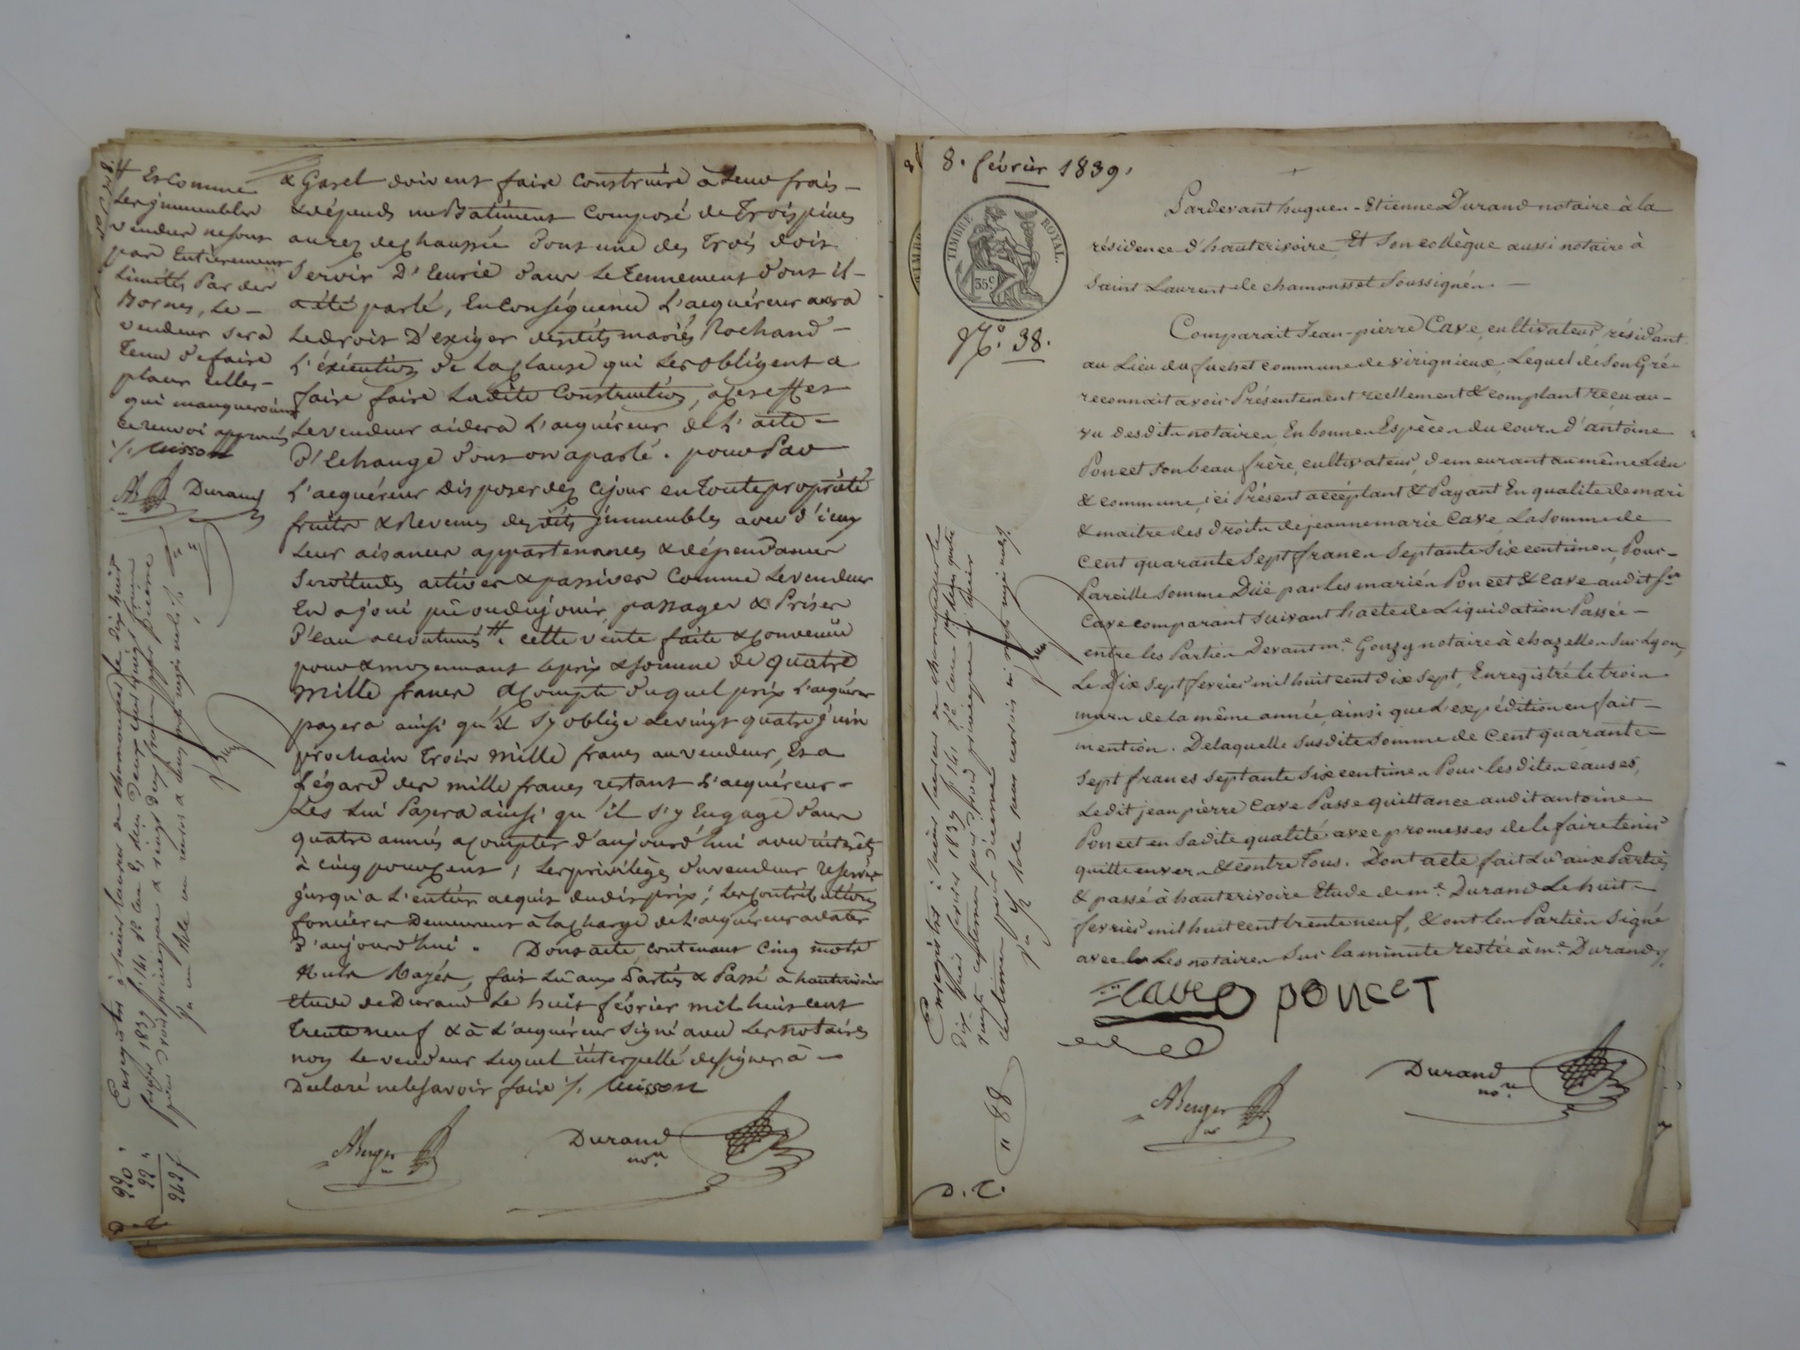 & Garel doivent faire construire à leur frais –
& dépends un Batiment composé de trois pièces
au rez de chaussée dont une des trois doit
servir d'Ecurie dans le tennement dont il –
a été parlé, En conséquence l'acquéreur aura
Le droit D'exiger desdits mariés Rochand –
L'éxécution de la clause qui les obligent a
faire faire Ladite Construction, à ces effets
Le vendeur aidera l'acquéreur de l'acte –
D'Echange dont on a parlé. pour Par
L'acquéreur disposer dez ce jour en toute propriété
fruits & Revenus desdits jmmeubles avec d'iceux
Leur aisances appartenances & dépendances
Servitudes actives & passives Comme Le vendeur
En a joui pû ou du jouir, passages & Prises
D'eau accoutumés #. cette vente faite & Convenue
pour & moyennant le prix & somme de quatre
mille francs à Compte duquel prix l'acquéreur
payera ainsi qu'il s'y oblige Le vingt quatre juin
prochain trois mille francs au vendeur, Et a
L'égard des mille francs restant L'acquéreur –
Les lui Payera ainsi qu'il s'y Engage dans
quatre années à compter d'aujourd'hui avec intérêts
à cinq pour cent; Les privilèges du vendeur reservés
jusqu'a l'entier acquit dudit prix; Les Contributions
foncières Demeurent à la charge de l'acquéreur a dater
d'aujourd'hui. Dont acte, contenant Cinq mots
nuls Rayés, fait Lu aux Parties & Passé à hauterivoire
Etude de Durand Le huit février mil huit cent
trente neuf & a L'acquéreur signé avec Les notaires
non Le vendeur Lequel interpellé de signer à –
Déclaré ne le savoir faire ./. Cuisson
ABerger Durand
no.re
# Et Comme
Les jmmeubles
vendus ne sont
pas Entièrement
Limités Par des
Bornes, Le –
vendeur sera
tenu de faire
placer celles –
qui manqueroient
Ce renvoi approuvé
./. Cuisson
AB Durand
Enregistré à Saint Laurent de chamousset le dix huit
février 1839 f. 141
220 "
22 "
242 "
D. C.
8. février 1839.
Pardevant hugues-Etienne Durand notaire à la
résidence d'hauterivoire Et Son collègue aussi notaire à
Saint Laurent de chamousset Soussignés. –
TIMBRE ROYAL.
35c
N.o 38.
Comparait Jean-pierre Cave, cultivateur, résidant
au Lieu du fuchet commune de virignieux, Lequel de Son Gré –
reconnait avoir Présentement réellement & comptant reçu au –
vu desdits notaires, En bonnes Espèces du cours d'antoine
Poncet Son beau frère, cultivateur demeurant au même Lieu
& commune, ici Présent accéptant & Payant En qualité de mari
& maitre des droits de jeanne marie Cave La Somme de
Cent quarante Sept francs Septante Six centimes, Pour –
Pareille Somme Düe par les mariés Poncet & Cave audit Sr
Cave comparant suivant L'acte de Liquidation Passée –
entre les Parties Devant m.e Gouzy notaire à chazelles Sur Lyon,
Le Dix Sept fevrier mil huit cent dix Sept, Enregistré le trois
mars de la même année, ainsi que L'expédition en fait –
mention. De laquelle Susdite Somme de Cent quarante –
Sept francs Septante Six centimes Pour les dites causes,
Ledit jean pierre Cave Passe quittance audit antoine
Poncet en Sa dite qualité avec promesses de le faire tenir
quitte envers & contre tous. Dont acte fait Lu aux Parties
& passé à hauterivoire Etude de m.e Durand Le huit –
fevrier mil huit cent trente neuf, & ont les Parties Signé
avec les notaires Sur la minute restée à m.e Durand ./.
Cave Poncet
ABerger Durand
no.re
Enregistré à Saint Laurent de chamousset le
" 88
D. C.